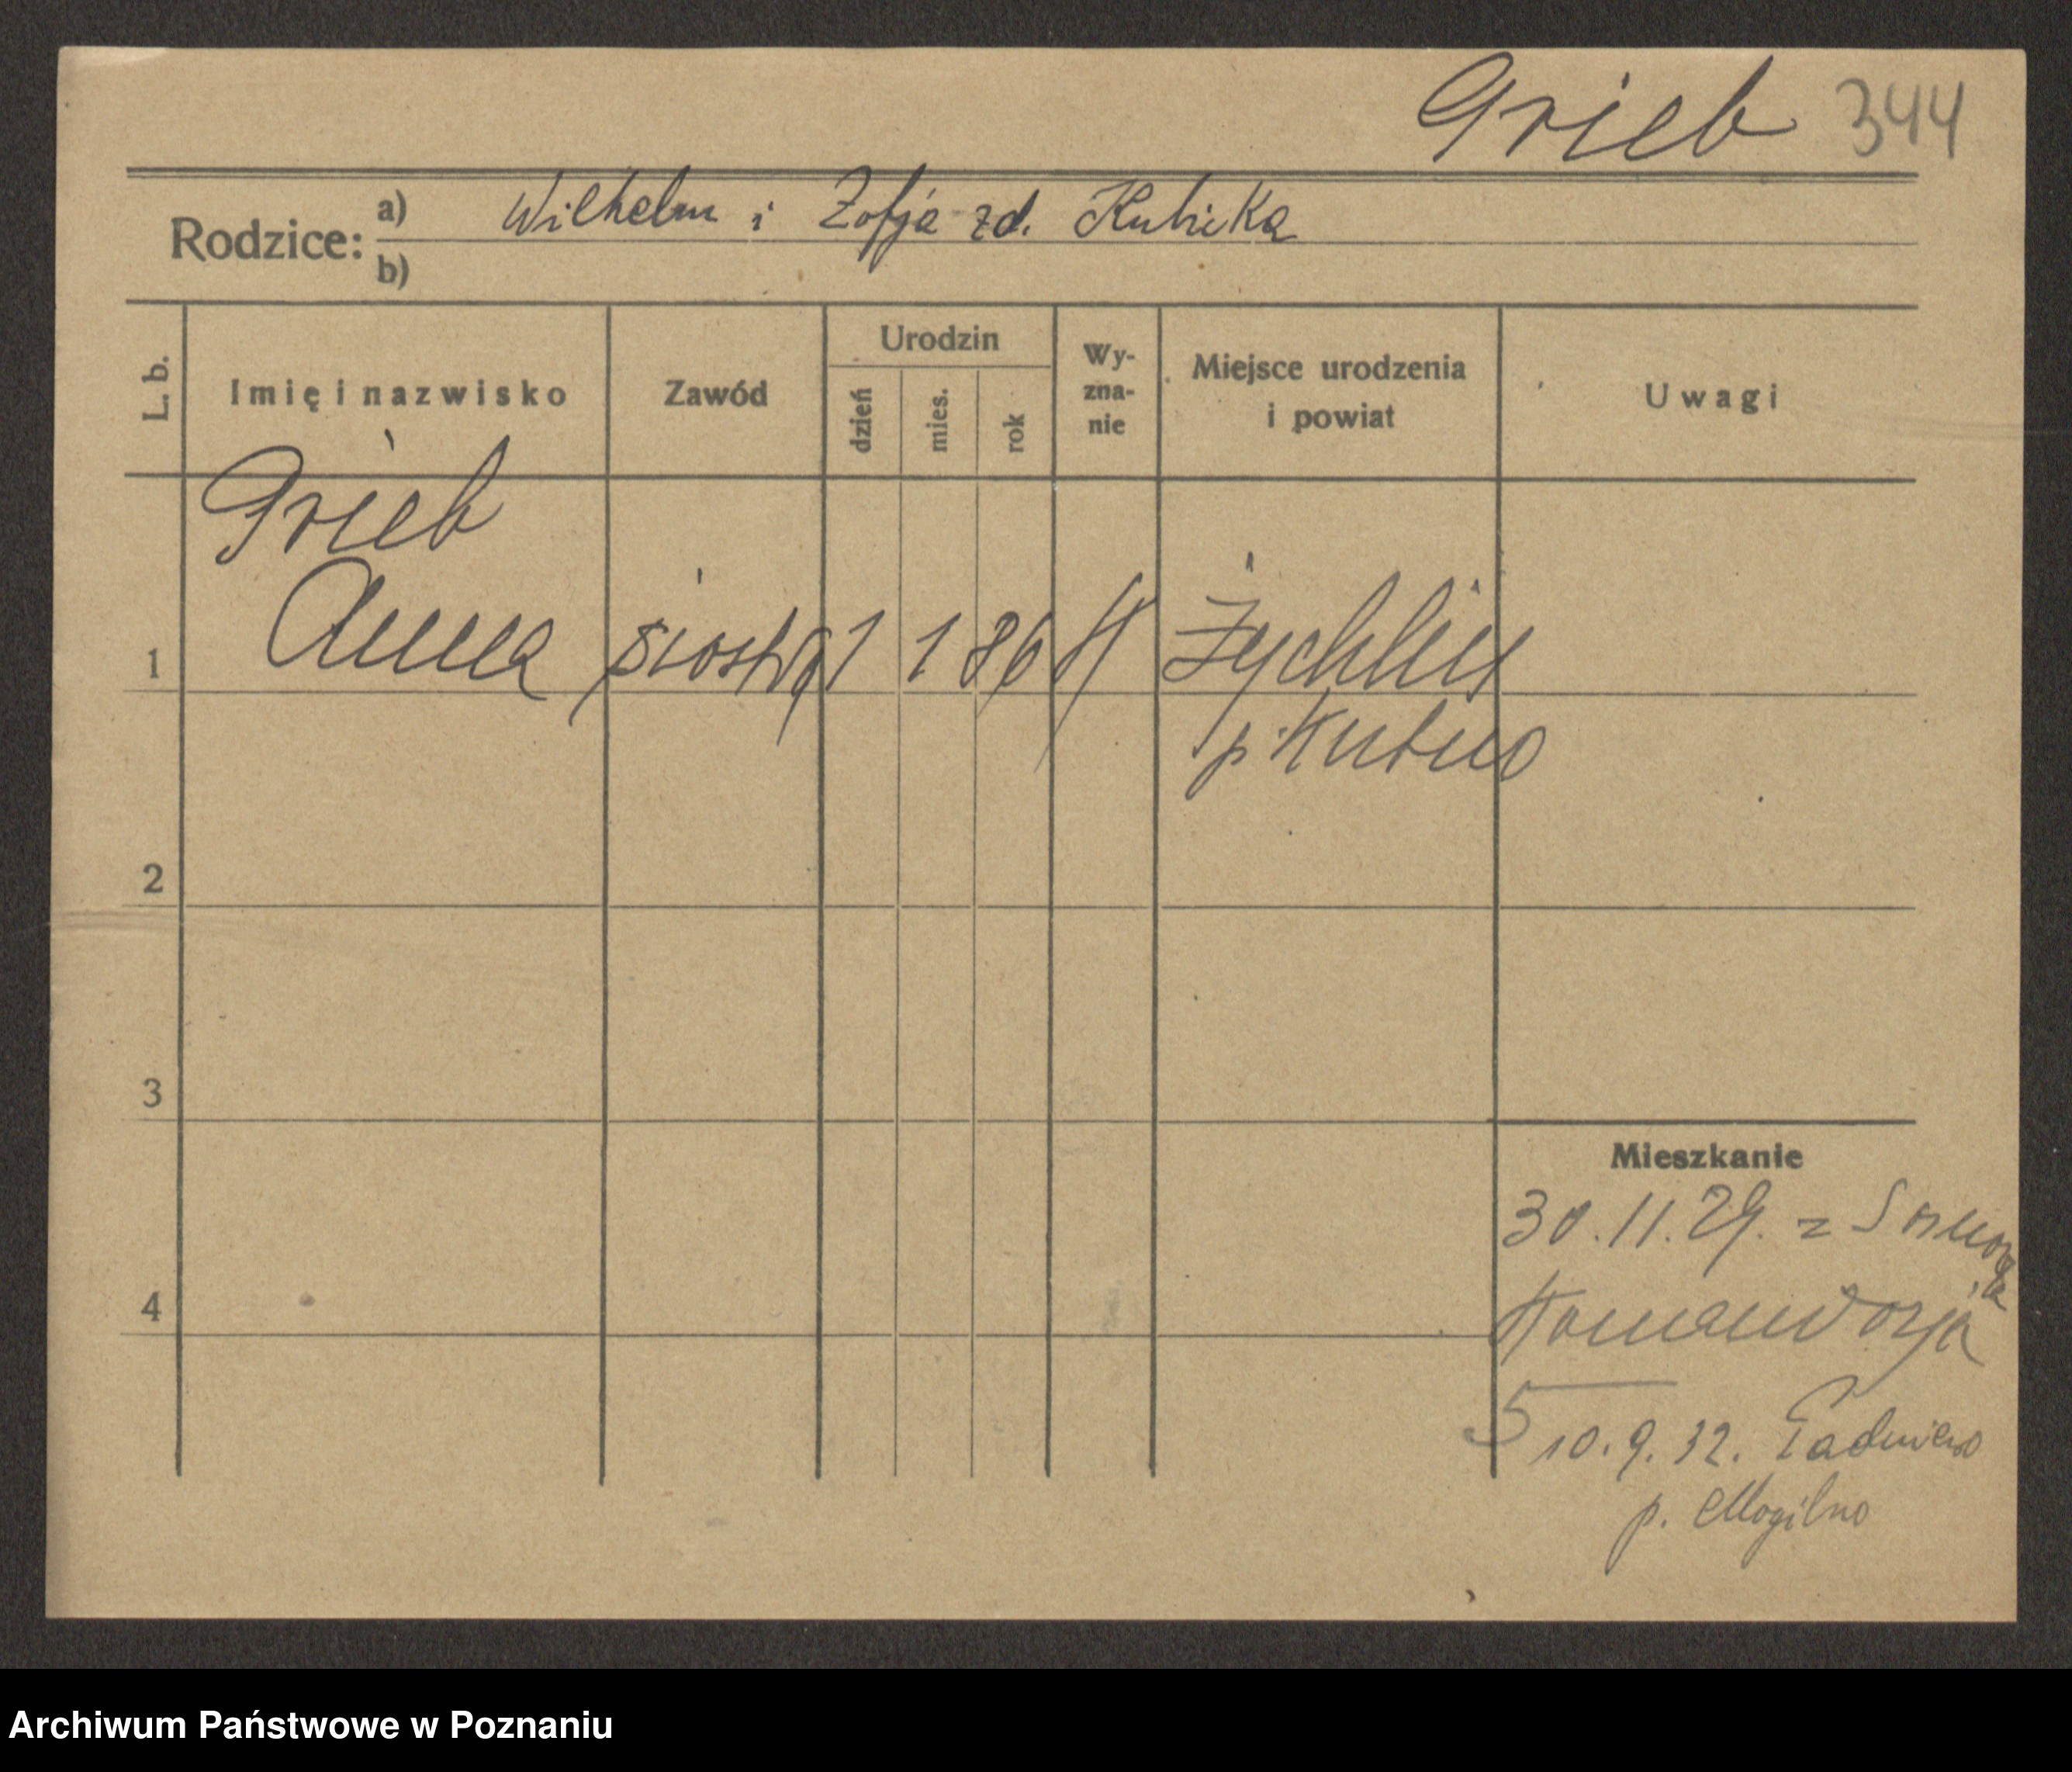 Grieb 344
Rodzice: a) Wilhelm i Zofja zd. Kubicka
b)
L. b. Imię i nazwisko Zawód Urodzin dzień mies. rok Wyznanie Miejsce urodzenia i powiat Uwagi
Grieb
1 Anna siostra 1 1 86 Żychlin
p. Kutno
2
3
Mieszkanie
30.11.29. z
4 Komandorja
5 10.9.32. Padniewo
p. Mogilno
Archiwum Państwowe w Poznaniu